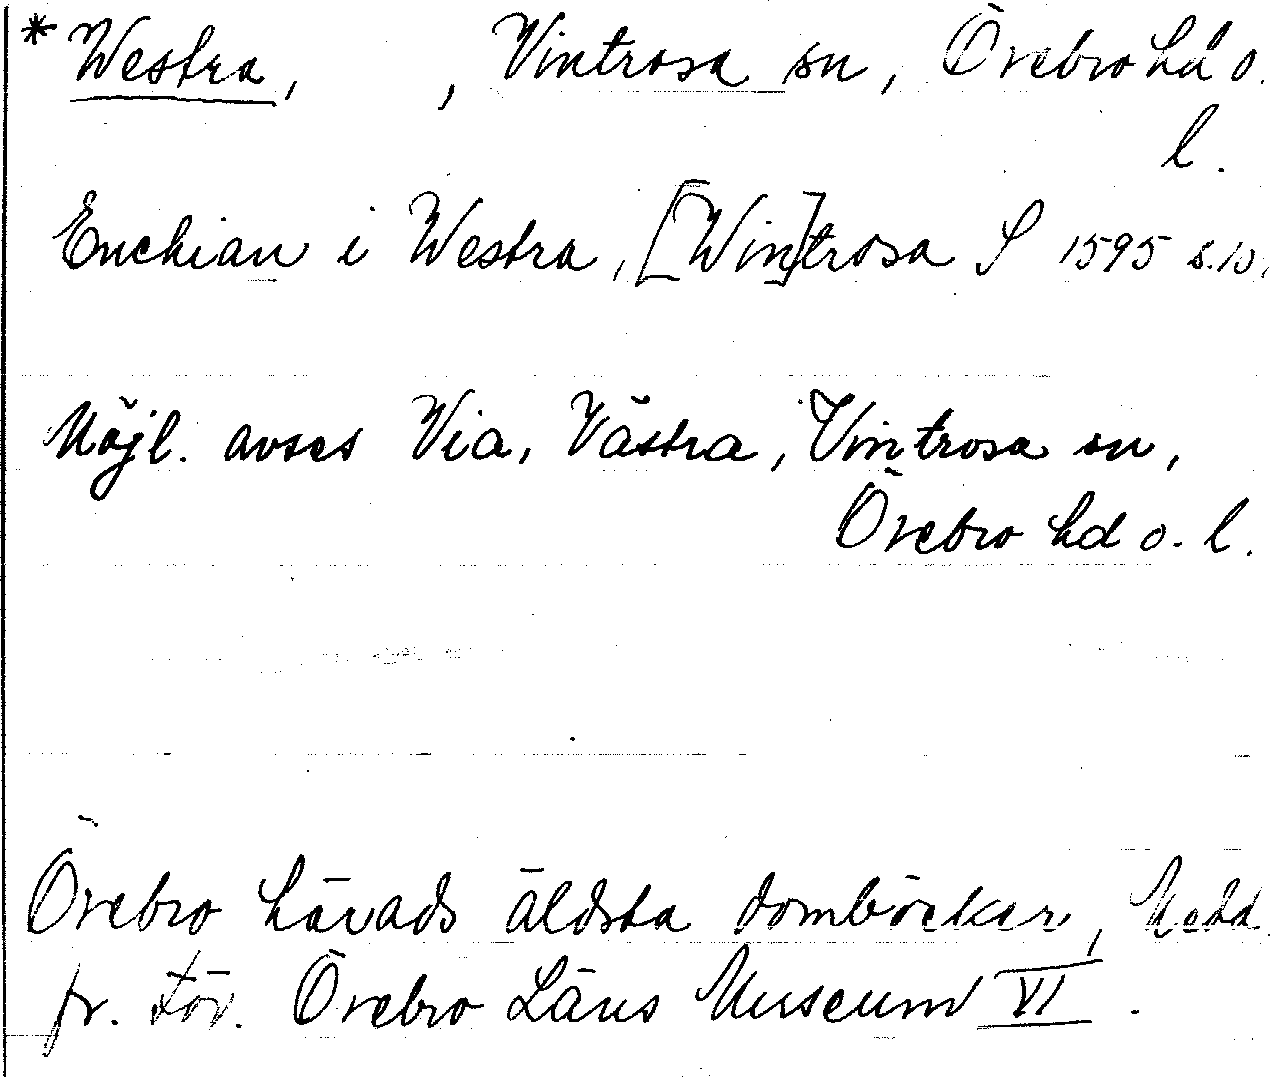 * Westra, , Vintrosa sn, Örebro hd o.
l.
Enchian i Westra, [Win]trosa S 1595 s. 10.
Möjl. avses Via, Västra, Vintrosa sn,
Örebro hd o. l.
Örebro härads äldsta domböcker, Medd.
fr.För. Örebro Läns Museum VI.